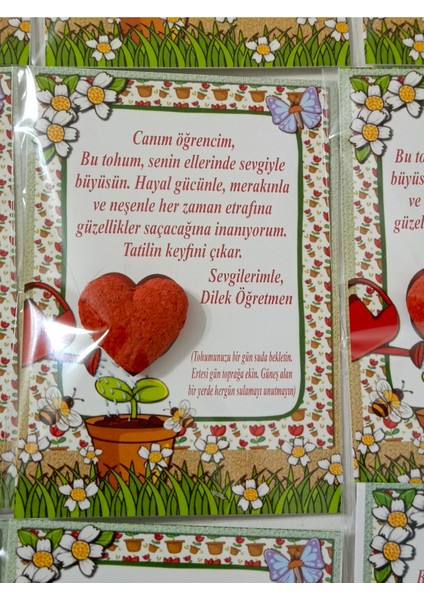 Canım öğrencim,
Bu tohum, senin ellerinde sevgiyle
büyüsün. Hayal gücünle, merakınla
ve neşenle her zaman etrafına
güzellikler saçacağına inanıyorum.
Tatilin keyfini çıkar.
Sevgilerimle,
Dilek Öğretmen
(Tohumunuzu bir gün suda bekletin.
Ertesi gün toprağa ekin. Güneş alan
bir yerde hergün sulamayı unutmayın)
Bu to
büyüsü
ve
güzell